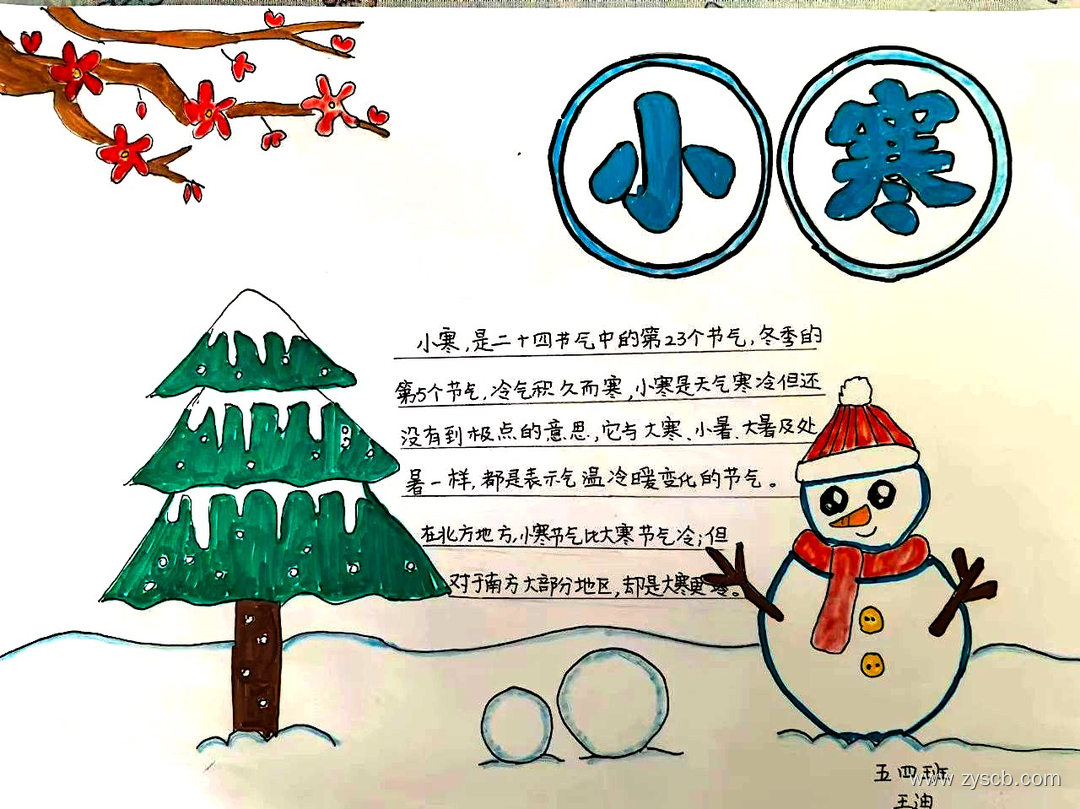 小寒
小寒,是二十四节气中的第23个节气,冬季的
第5个节气,冷气积久而寒,小寒是天气寒冷但还
没有到极点的意思,它与大寒、小暑、大暑及处
暑一样,都是表示气温冷暖变化的节气。
在北方地方,小寒节气比大寒节气冷;但
对于南方大部分地区,却是大寒更寒。
五四班
www.zyscb.com
王迪